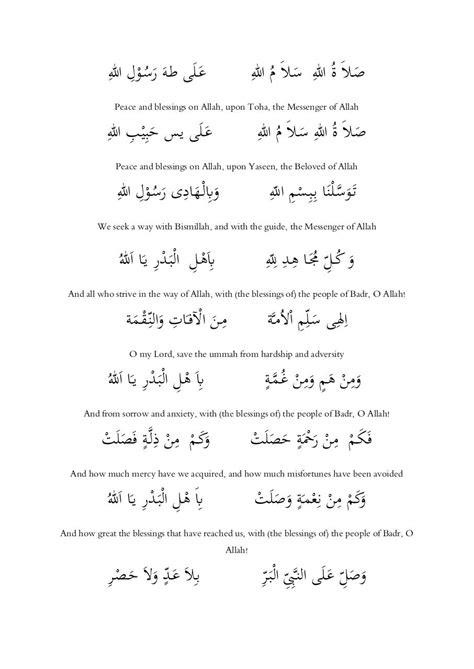 صَلاَ ةُ اللهِ سَلاَ مُ اللهِ عَلَى طهَ رَسُوْلِ اللهِ
Peace and blessings on Allah, upon Toha, the Messenger of Allah
صَلاَ ةُ اللهِ سَلاَ مُ اللهِ عَلَى يس حَبِيْبِ اللهِ
Peace and blessings on Allah, upon Yaseen, the Beloved of Allah
تَوَسَّلْنَا بِبِسْمِ اللهِ وَبِالْهَادِى رَسُوْلِ اللهِ
We seek a way with Bismillah, and with the guide, the Messenger of Allah
وَ كُلِّ مُجَا هِدِ لِلّهِ بِاَهْلِ الْبَدْرِ يَا اَللهُ
And all who strive in the way of Allah, with (the blessings of) the people of Badr, O Allah!
اِلهِى سَلِّمِ اْلاُمَّة مِنَ الْآفَاتِ وَالنِّقْمَة
O my Lord, save the ummah from hardship and adversity
وَمِنْ هَمٍ وَمِنْ غُمَّةٍ بِاَ هْلِ الْبَدْرِ يَا اَللهُ
And from sorrow and anxiety, with (the blessings of) the people of Badr, O Allah!
فَكَمْ مِنْ رَحْمَةٍ حَصَلَتْ وَكَمْ مِنْ ذِلَّةٍ فَصَلَتْ
And how much mercy have we acquired, and how much misfortunes have been avoided
وَكَمْ مِنْ نِعْمَةٍ وَصَلَتْ بِاَ هْلِ الْبَدْرِ يَا اَللهُ
And how great the blessings that have reached us, with (the blessings of) the people of Badr, O
Allah!
وَصَلِّ عَلَى النَّبِيِّ الْبَرِّ بِلاَ عَدٍّ وَلاَ حَصْرِ